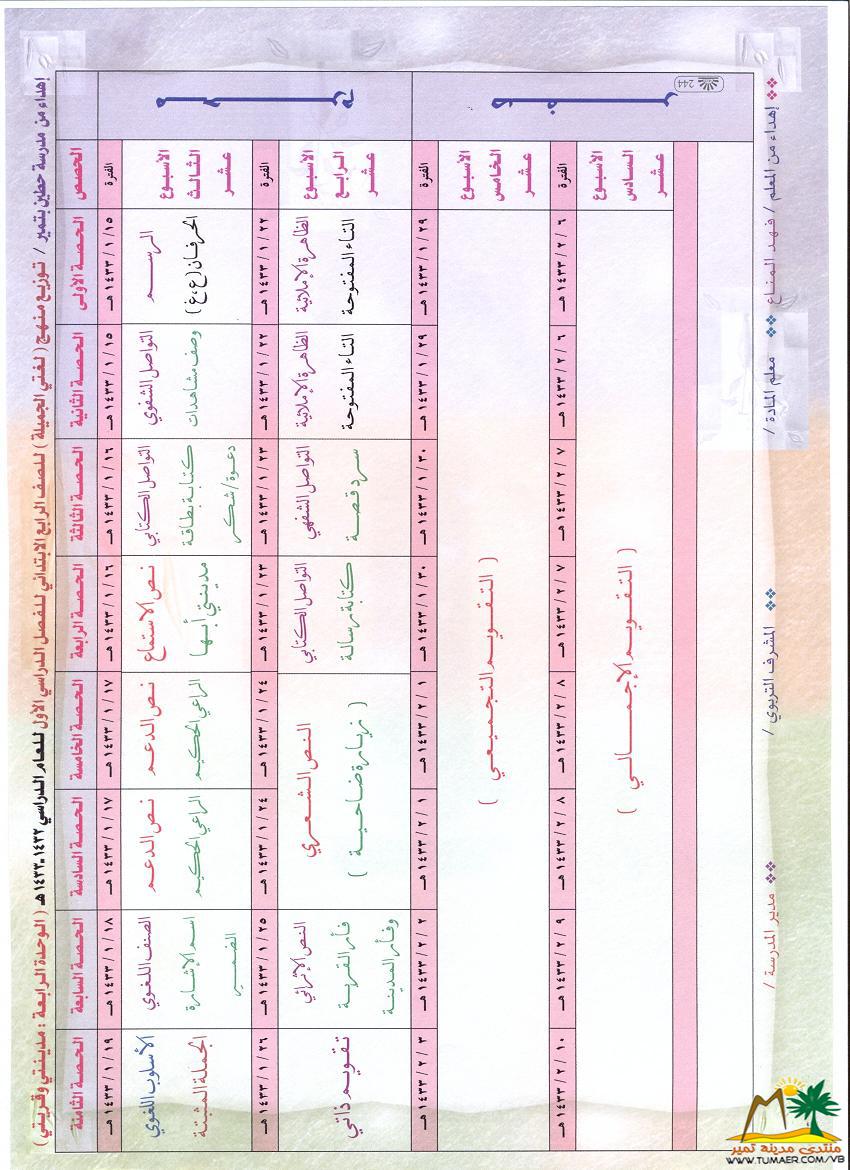 إهداء من مدرسة حطين بتمير / توزيع منهج ( لغتي الجميلة ) للصف الرابع الابتدائي للفصل الدراسي الأول للعام الدراسي ١٤٣٢-١٤٣٣ هـ ( الوحدة الرابعة : مدينتي وقريتي )
الحصص
الحصة الأولى
الحصة الثانية
الحصة الثالثة
الحصة الرابعة
الحصة الخامسة
الحصة السادسة
الحصة السابعة
الحصة الثامنة
محرم
الفترة
١٤٣٣ / ١ / ١٥ هـ
١٤٣٣ / ١ / ١٥ هـ
١٤٣٣ / ١ / ١٦ هـ
١٤٣٣ / ١ / ١٦ هـ
١٤٣٣ / ١ / ١٧ هـ
١٤٣٣ / ١ / ١٧ هـ
١٤٣٣ / ١ / ١٨ هـ
١٤٣٣ / ١ / ١٩ هـ
الأسبوع
الثالث
عشر
الرسم
الحرفان ( ع ، غ )
التواصل الشفوي
وصف مشاهدات
التواصل الكتابي
كتابة بطاقة
دعوة / شكر
نص الاستماع
مدينتي أبها
نص الدعم
الراعي الحكيم
نص الدعم
الراعي الحكيم
الصنف اللغوي
اسم الإشارة
الضمير
الأسلوب اللغوي
الجملة المثبتة
الفترة
١٤٣٣ / ١ / ٢٢ هـ
١٤٣٣ / ١ / ٢٢ هـ
١٤٣٣ / ١ / ٢٣ هـ
١٤٣٣ / ١ / ٢٣ هـ
١٤٣٣ / ١ / ٢٤ هـ
١٤٣٣ / ١ / ٢٤ هـ
١٤٣٣ / ١ / ٢٥ هـ
١٤٣٣ / ١ / ٢٦ هـ
الأسبوع
الرابع
عشر
الظاهرة الإملائية
التاء المفتوحة
الظاهرة الإملائية
التاء المفتوحة
التواصل الشفهي
سرد قصة
التواصل الكتابي
كتابة رسالة
النص الشعري
( زيارة ضاحية )
النص الإثرائي
فأر القرية
وفأر المدينة
تقويم ذاتي
صفر
244
الفترة
١٤٣٣ / ١ / ٢٩ هـ
١٤٣٣ / ١ / ٢٩ هـ
١٤٣٣ / ١ / ٣٠ هـ
١٤٣٣ / ١ / ٣٠ هـ
١٤٣٣ / ٢ / ١ هـ
١٤٣٣ / ٢ / ١ هـ
١٤٣٣ / ٢ / ٢ هـ
١٤٣٣ / ٢ / ٣ هـ
الأسبوع
الخامس
عشر
( التقويم التجميعي )
الفترة
١٤٣٣ / ٢ / ٦ هـ
١٤٣٣ / ٢ / ٦ هـ
١٤٣٣ / ٢ / ٧ هـ
١٤٣٣ / ٢ / ٧ هـ
١٤٣٣ / ٢ / ٨ هـ
١٤٣٣ / ٢ / ٨ هـ
١٤٣٣ / ٢ / ٩ هـ
١٤٣٣ / ٢ / ١٠ هـ
الأسبوع
السادس
عشر
( التقويم الإجمالي )
إهداء من المعلم / فهد المناع
معلم المادة /
المشرف التربوي /
مدير المدرسة /
منتدى مدينة تمير
WWW.TUMAER.COM/VB